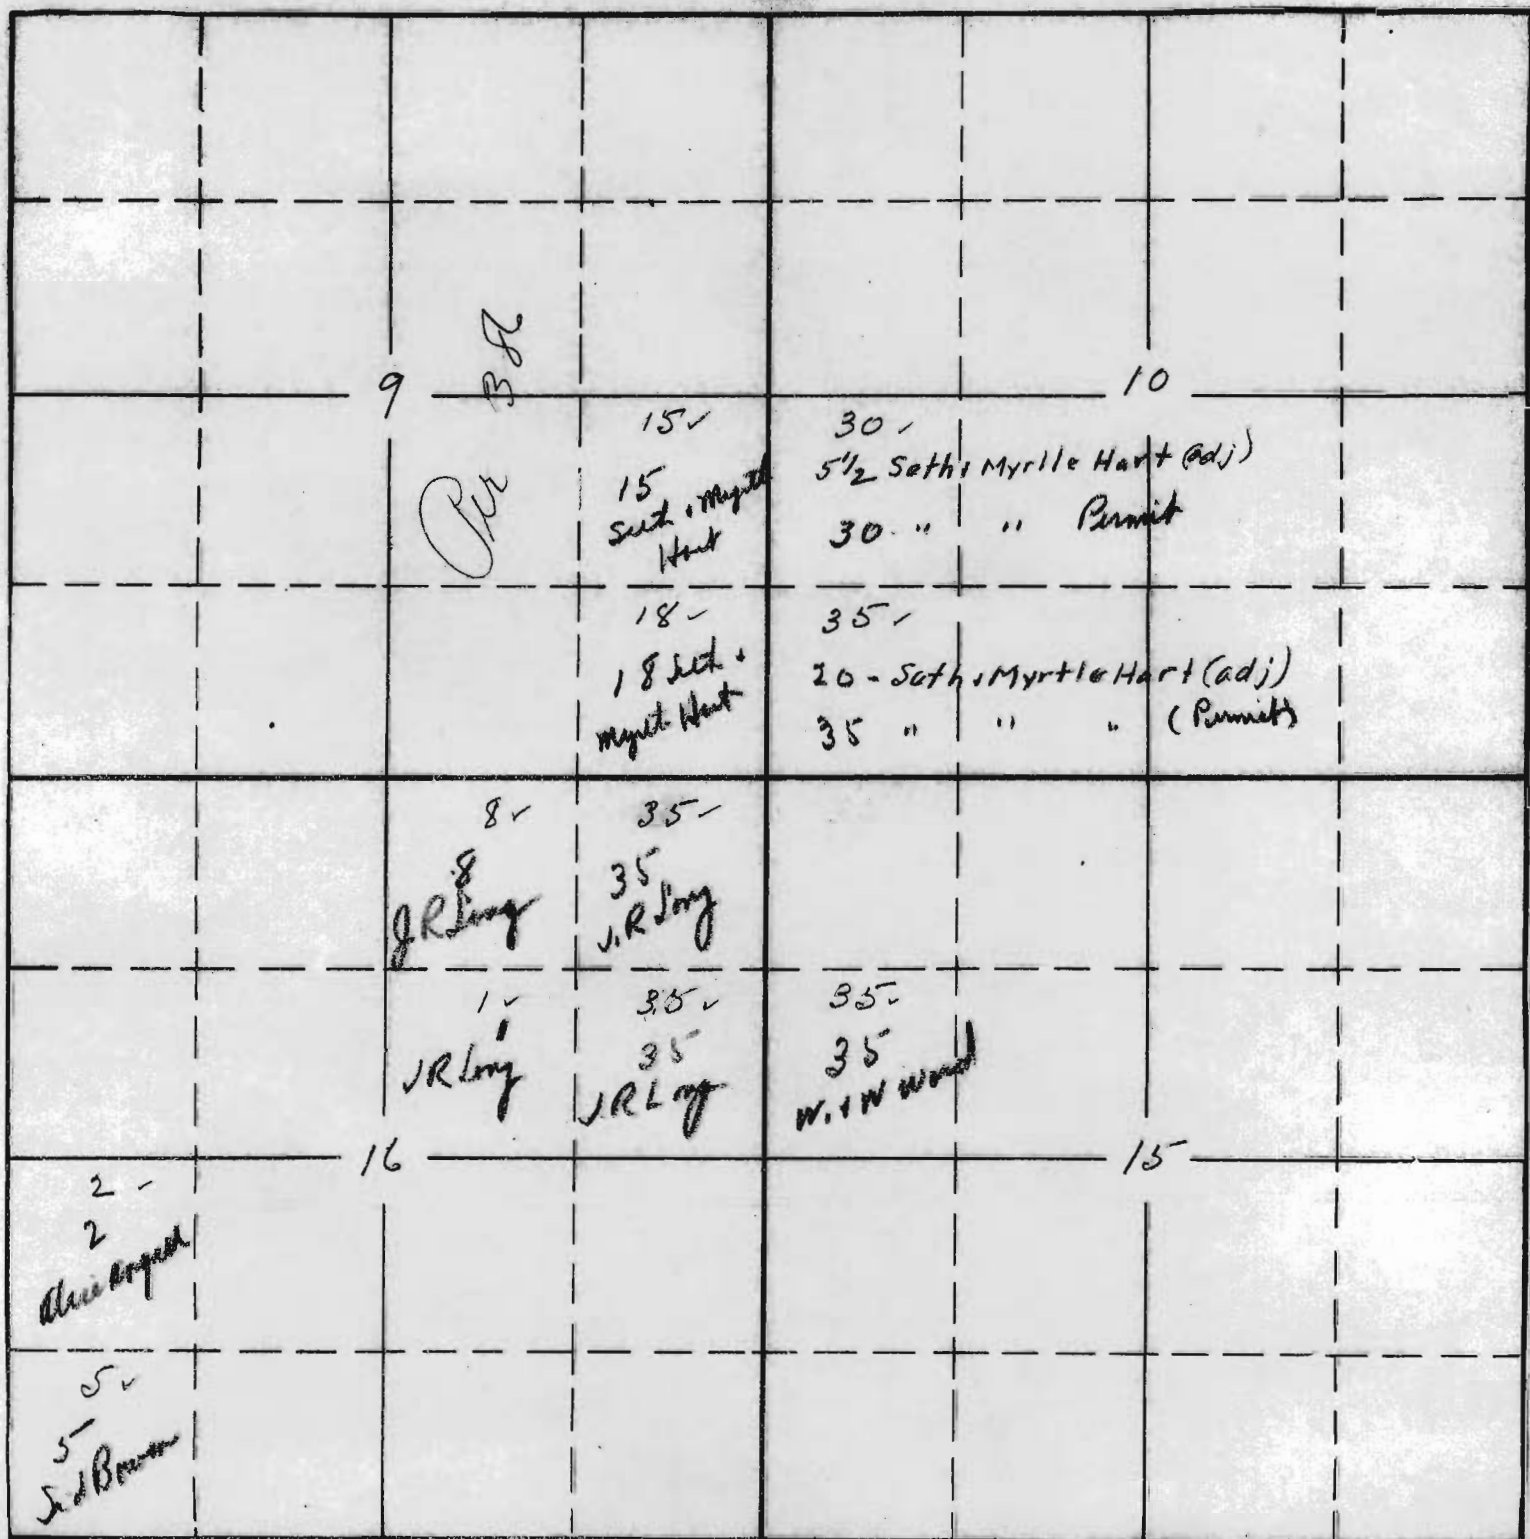 9
10
Per
15✓
15
Seth & Myrtle
Hart
30✓
5 1/2 Seth & Myrtle Hart (adj)
30 " " Permit
18✓
18 Seth &
Myrtle Hart
35✓
20 - Seth & Myrtle Hart (adj)
35 " " " (Permit)
8✓
8
J R Long
35✓
35
J. R Long
1✓
1
J R Long
35✓
35
J. R Long
35✓
35
W. & W Ward
16
15
2✓
2
5✓
5